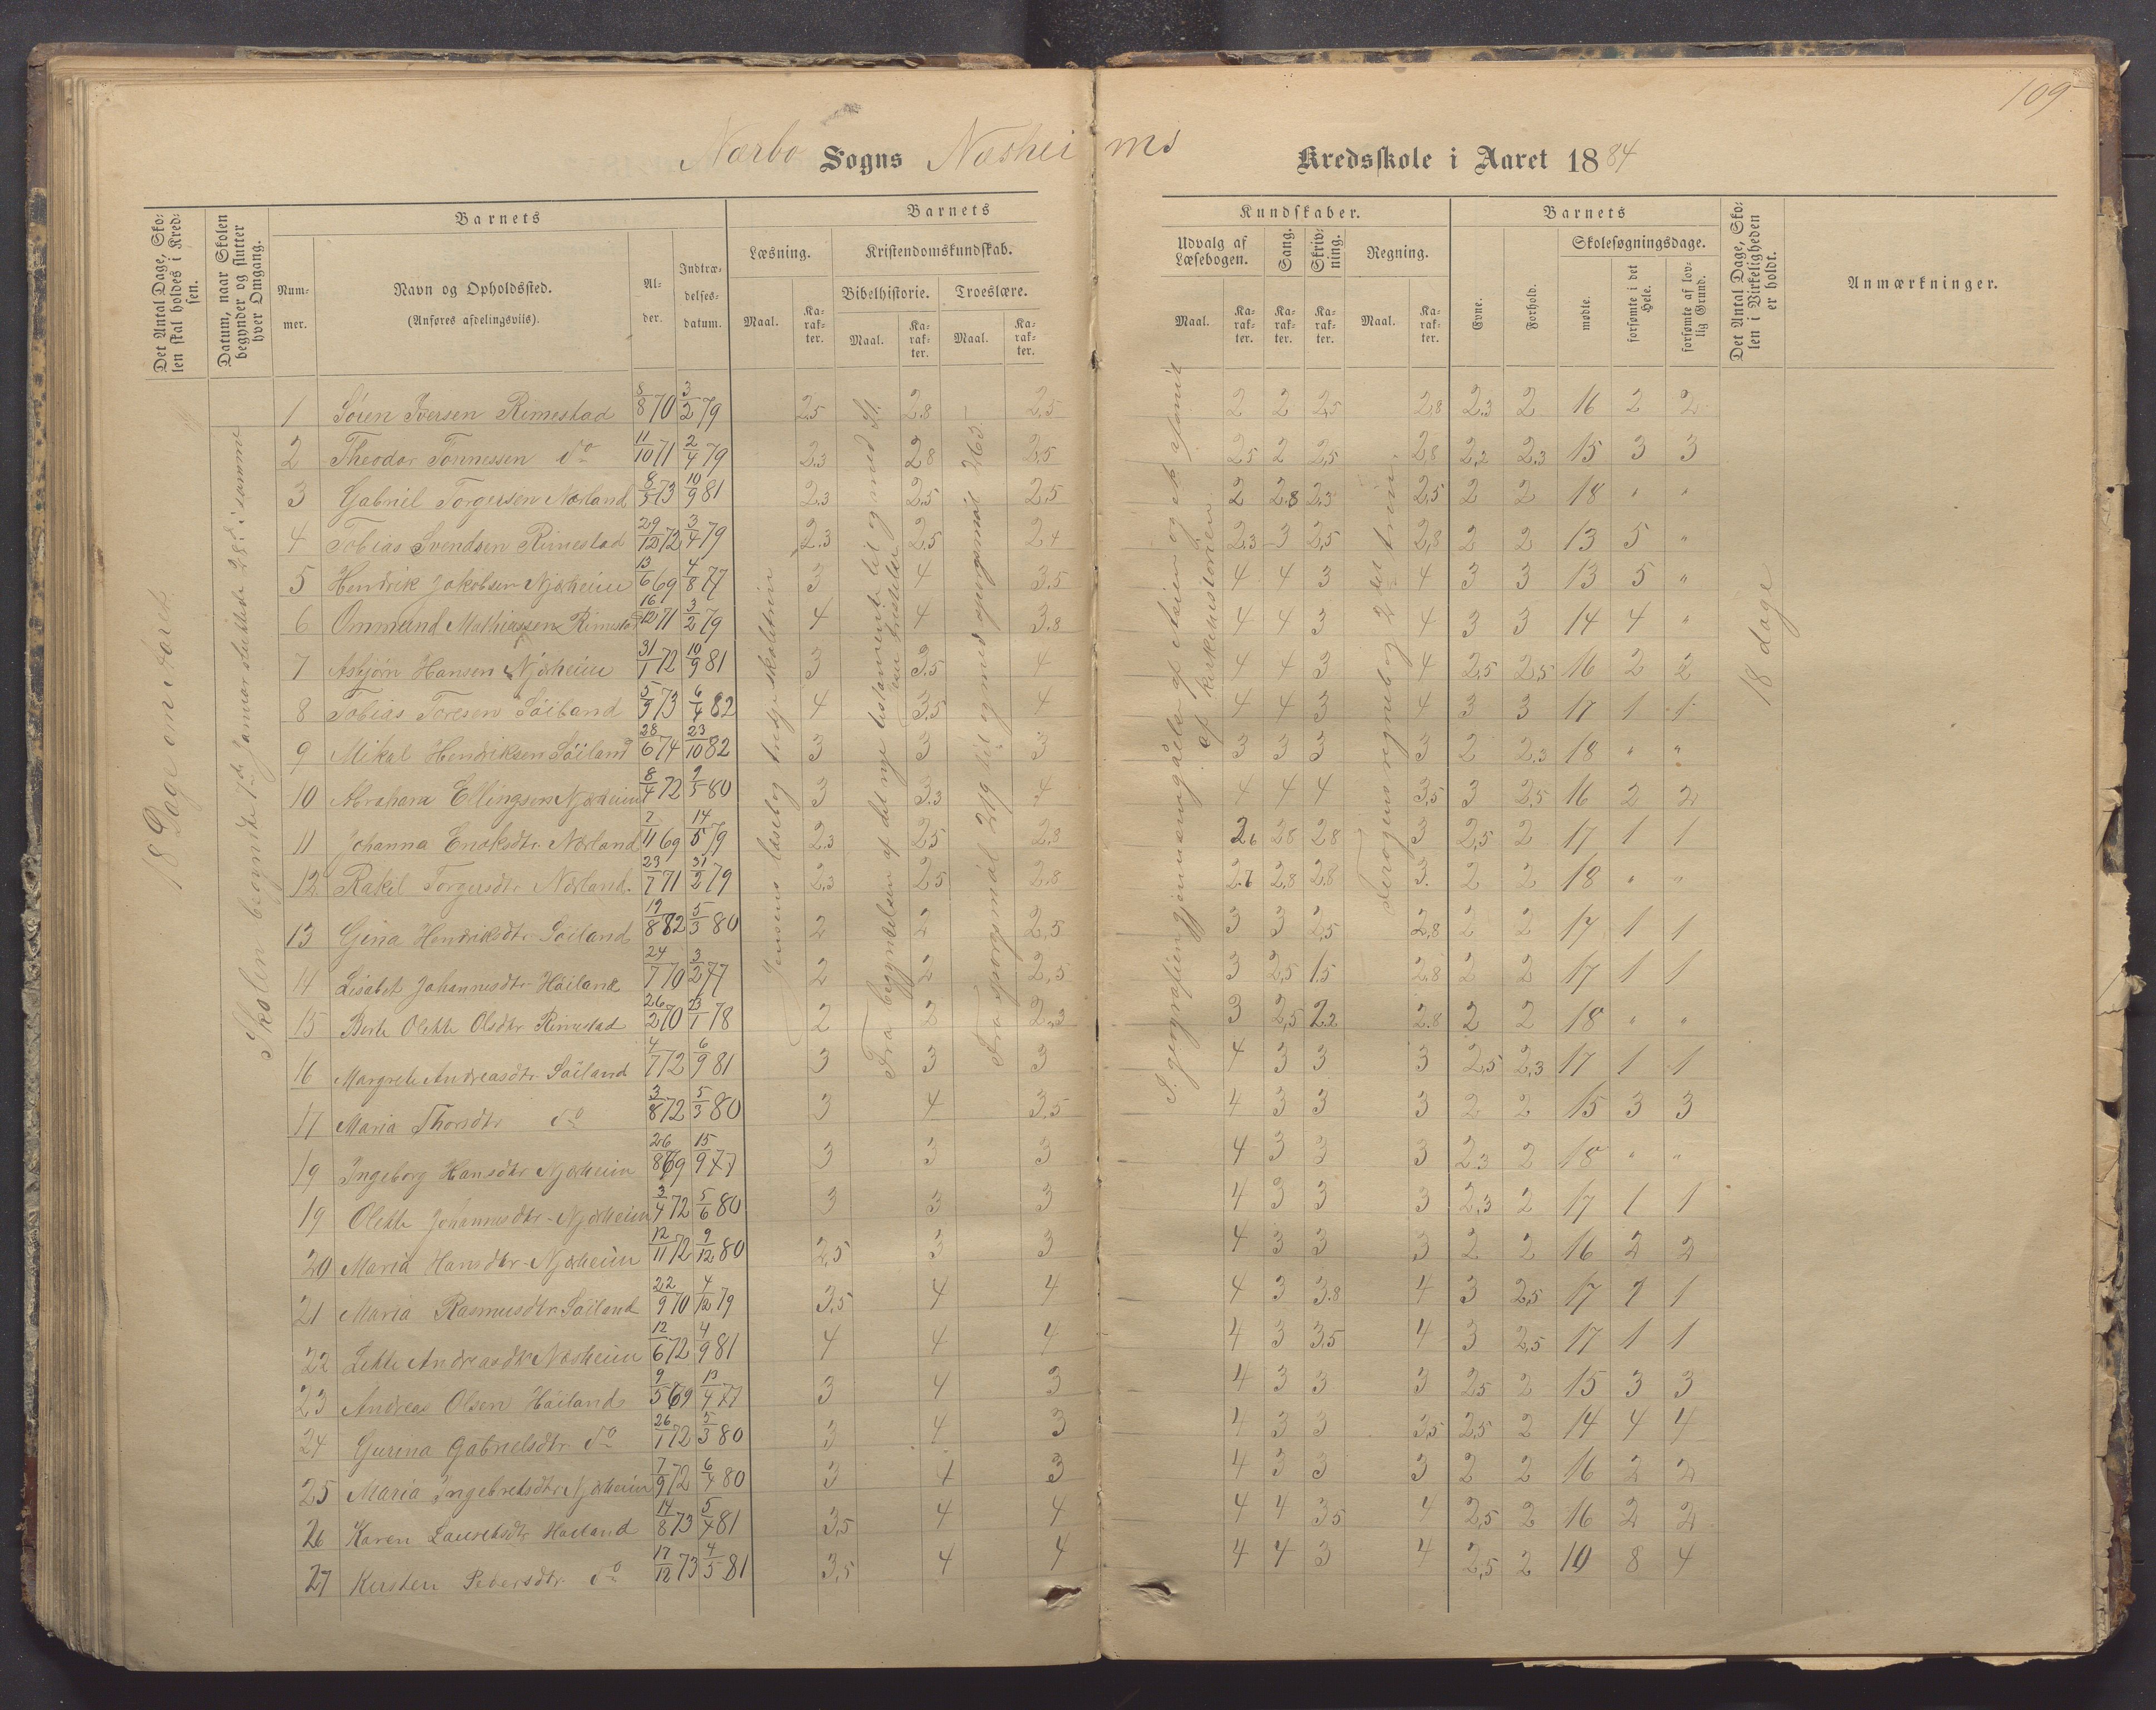 109
Nærbo Sogns Næsheims Kredsskole i Aaret 1884
Det Antal Dage, Skolen skal holdes i Kredsen.
Datum, naar Skolen begynder og slutter hver Omgang.
Barnets
Nummer.
Navn og Opholdssted.
(Anføres afdelingsviis).
Alder.
Indtrædelsesdatum.
Barnets Kundskaber.
Læsning.
Maal.
Karakter.
Kristendomskundskab.
Bibelhistorie.
Maal.
Karakter.
Troeslære.
Maal.
Karakter.
Udvalg af Læsebogen.
Maal.
Karakter.
Sang.
Karakter.
Skrivning.
Karakter.
Regning.
Maal.
Karakter.
Barnets
Evne.
Forhold.
Skolesøgningsdage.
mødte.
forsømte i det Hele.
forsømte af lovlig Grund.
Det Antal Dage, Skolen i Virkeligheden er holdt.
Anmærkninger.
18 Dage om året.
Skolen begyndte 1ste Januar sluttede 28. i samme
Jensens læsebog tredje skoletrin
Fra begyndelsen af det nye testamente til og med
Fra spørgsmål 219 til og med spørgsmål 263.
I geografien gjennemgåes af Asien og et afsnit af kirkehistorien
regnebog 2det trin.
18 dage
1 Sören Iversen Rimestad 8/8 70 3/2 79 2,5 2.8 2,5 2 2 2,5 2,8 2.3 2 16 2 2
2 Theodor Tönnessen do 11/10 71 2/4 79 2.3 2.8 2,5 2,5 2 2,5 2,8 2,2 2.3 15 3 3
3 Gabriel Torgersen Nærland 8/5 73 10/9 81 2.3 2.5 2.5 2 2.8 2.3 2,5 2 2 18 " "
4 Tobias Svendsen Rimestad 29/12 72 3/4 79 2.3 2.5 2.4 2.3 3 2,5 2,8 2 2 13 5 "
5 Hendrik Jakobsen Njærheim 13/6 69 4/8 77 3 4 3.5 4 4 3 4 3 3 13 5 "
6 Ommund Mathiassen Rimestad 16/12 71 3/2 79 4 4 3.8 4 4 3 4 3 3 14 4 "
7 Asbjörn Hansen Njærheim 31/1 72 10/9 81 3 3.5 4 4 4 3 4 2,5 2,5 16 2 2
8 Tobias Toresen Söiland 5/9 73 6/4 82 4 3.5 4 4 4 3 4 3 3 17 1 1
9 Mikal Hendriksen Söiland 28/6 74 23/10 82 3 3 3 3 3 3 3 2 2,3 18 " "
10 Abraham Ellingsen Njærheim 8/4 72 9/3 80 3 3.3 4 4 4 4 3,5 3 2,5 16 2 2
11 Johanna Enoksdtr. Nærland 2/11 69 14/5 79 2.3 2.5 2.8 2.6 2.8 2.8 3 2,5 2 17 1 1
12 Rakel Torgersdtr. Nærland. 23/7 71 31/2 79 2.3 2.5 2.8 2.7 2,8 2,8 3. 2 2 18 " "
13 Gina Hendriksdtr. Söiland 19/8 72 5/3 80 2 2 2,5 3 3 2,5 2,8 2 2 17 1 1
14 Lisabet Johannesdtr. Höiland 24/7 70 3/2 77 2 2 2,5 3 2,5 1.5 2.8 2 2 17 1 1
15 Berte Olette Olsdtr. Rimestad 26/2 70 23/1 78 2 2 2.3 3 2,5 2.2 2.8 2 2 18 " "
16 Margrete Andreasdtr. Söiland 4/7 72 6/9 81 3 3 3 4 3 3 3 2,5 2,3 17 1 1
17 Maria Thorsdtr. do 3/8 72 5/3 80 3 4 3,5 4 3 3 3 2 2 15 3 3
19 Ingeborg Hansdtr. Njærheim 26/8 69 15/9 77 3 3 3 4 3 3 3 2.3 2 18 " "
19 Olette Johannesdtr. Njærheim 3/4 72 5/6 80 3 3 3 4 3 3 3 2,3 2 17 1 1
20 Maria Hansdtr. Njærheim 12/11 72 9/12 80 2,5 3 3 4 3 3 3 2 2 16 2 2
21 Maria Rasmusdtr. Söiland 22/9 70 4/12 79 3,5 4 4 4 3 3.8 4 3 2,5 17 1 1
22 Lette Andreasdtr. Næsheim 12/6 72 4/9 81 4 4 4 4 3 3.5 4 3 2,5 17 1 1
23 Andreas Olsen Höiland 9/5 69 13/4 77 3 4 3 4 3 3 3 2.5 2 15 3 3
24 Gurina Gabrielsdtr. do 26/1 72 5/3 80 3 4 3 4 3 3 3,5 2,5 2 14 4 4
25 Maria Ingebretsdtr. Njærheim 7/9 72 6/4 80 3 4 3 4 3 3 3 2 2 16 2 2
26 Karen Lauretsdtr. Höiland 14/8 73 5/4 81 3,5 4 4 4 4 3.5 4 2,5 2 16 2 2
27 Kirsten Pedersdtr. do 17/12 73 4/5 81 3,5 4 4 4 4 3 4 2,5 2 10 8 4